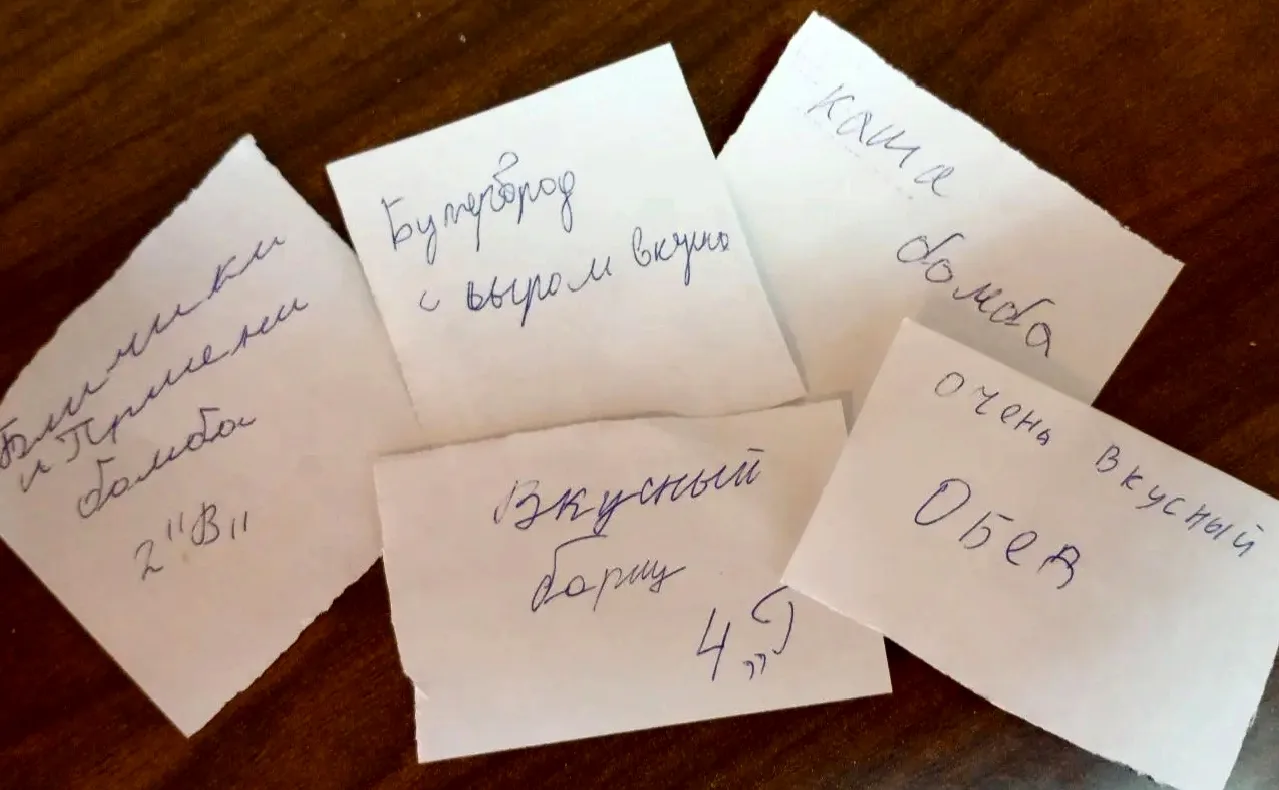 Блинчики
и Пршени
бомба
2 "В"
Бутерброд
с сыром вкуно
каша
бомба
Вкусный
борщ
4 „
очень вкусный
Обед